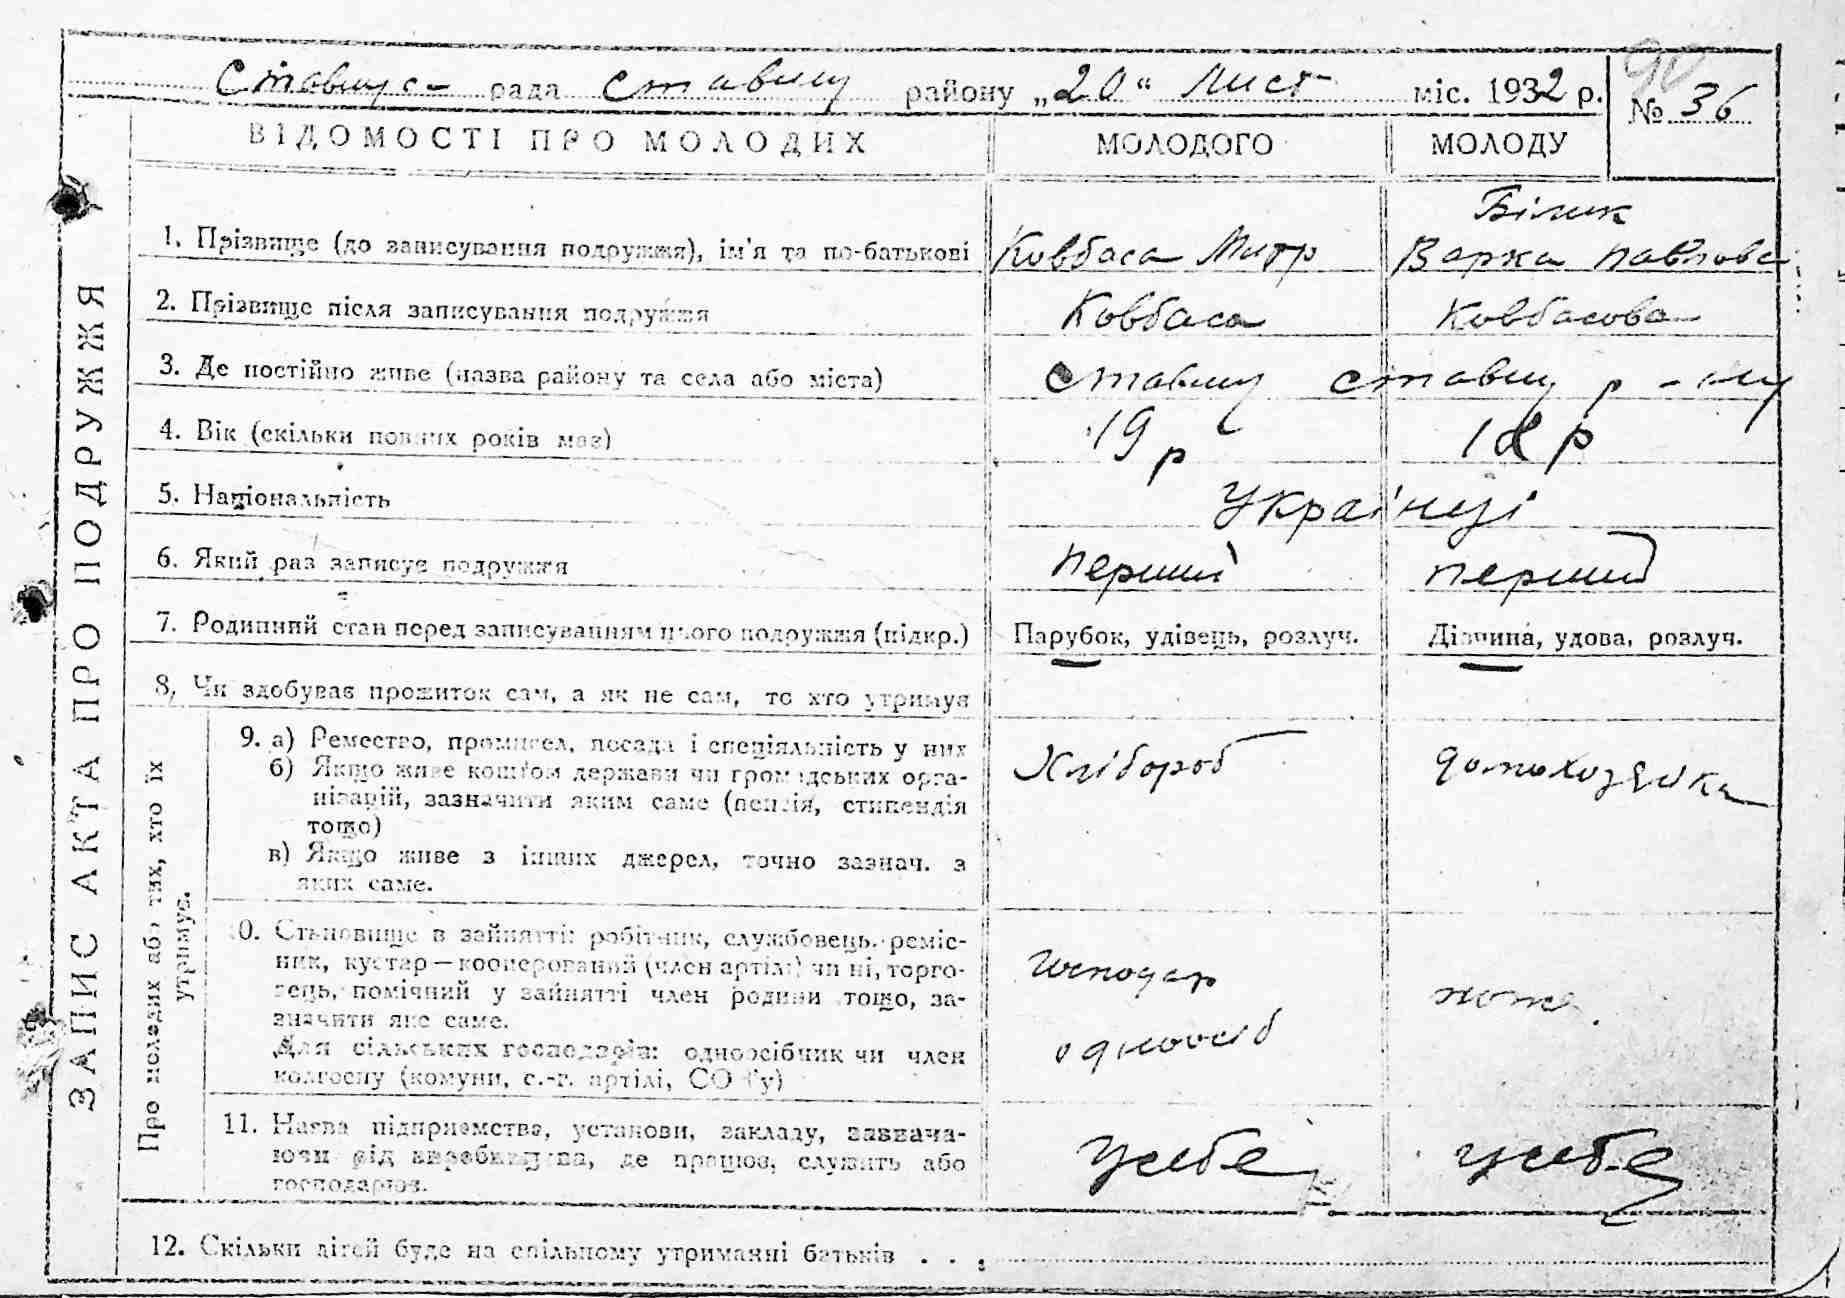 рада району „20“ Лист міс. 1932 р.
90
№ 36
ЗАПИС АКТА ПРО ПОДРУЖЖЯ
ВІДОМОСТІ ПРО МОЛОДИХ МОЛОДОГО МОЛОДУ
Білик
1. Прізвище (до записування подружжя), ім'я та по-батькові Ковбаса Митр Варка Павлова
2. Прізвище після записування подружжя Ковбаса Ковбасова
3. Де постійно живе (назва району та села або міста) Ставищ Ставищ р-ну
4. Вік (скільки повних років має) 19 р 18 р
5. Національність Українці
6. Який раз записує подружжя перший перший
7. Родинний стан перед записуванням цього подружжя (підкр.) Парубок, удівець, розлуч. Дівчина, удова, розлуч.
8. Чи здобуває прожиток сам, а як не сам, то хто утримує
Про молодих або тих, хто їх
утримує.
9. а) Ремество, промисел, посада і спеціяльність у них Хлібороб домохозяйка
б) Якщо живе коштом держави чи громадських орга-
нізацій, зазначити яким саме (пенсія, стипендія
тощо)
в) Якщо живе з інших джерел, точно зазнач. з
яких саме.
10. Становище в зайнятті: робітник, службовець, реміс-
ник, кустар — кооперований (член артілі) чи ні, торго-
вець, помічний у зайнятті член родини тощо, за-
значити яке саме.
Господар
тоже.
Для сільських господарів: одноосібник чи член
колгоспу (комуни, с.-г. артілі, СОЗ'у)
одноосіб
11. Назва підприємства, установи, закладу, зазнача-
ючи рід виробництва, де працює, служить або
господарює.
у себе у себе
12. Скільки дітей буде на спільному утриманні батьків . . .